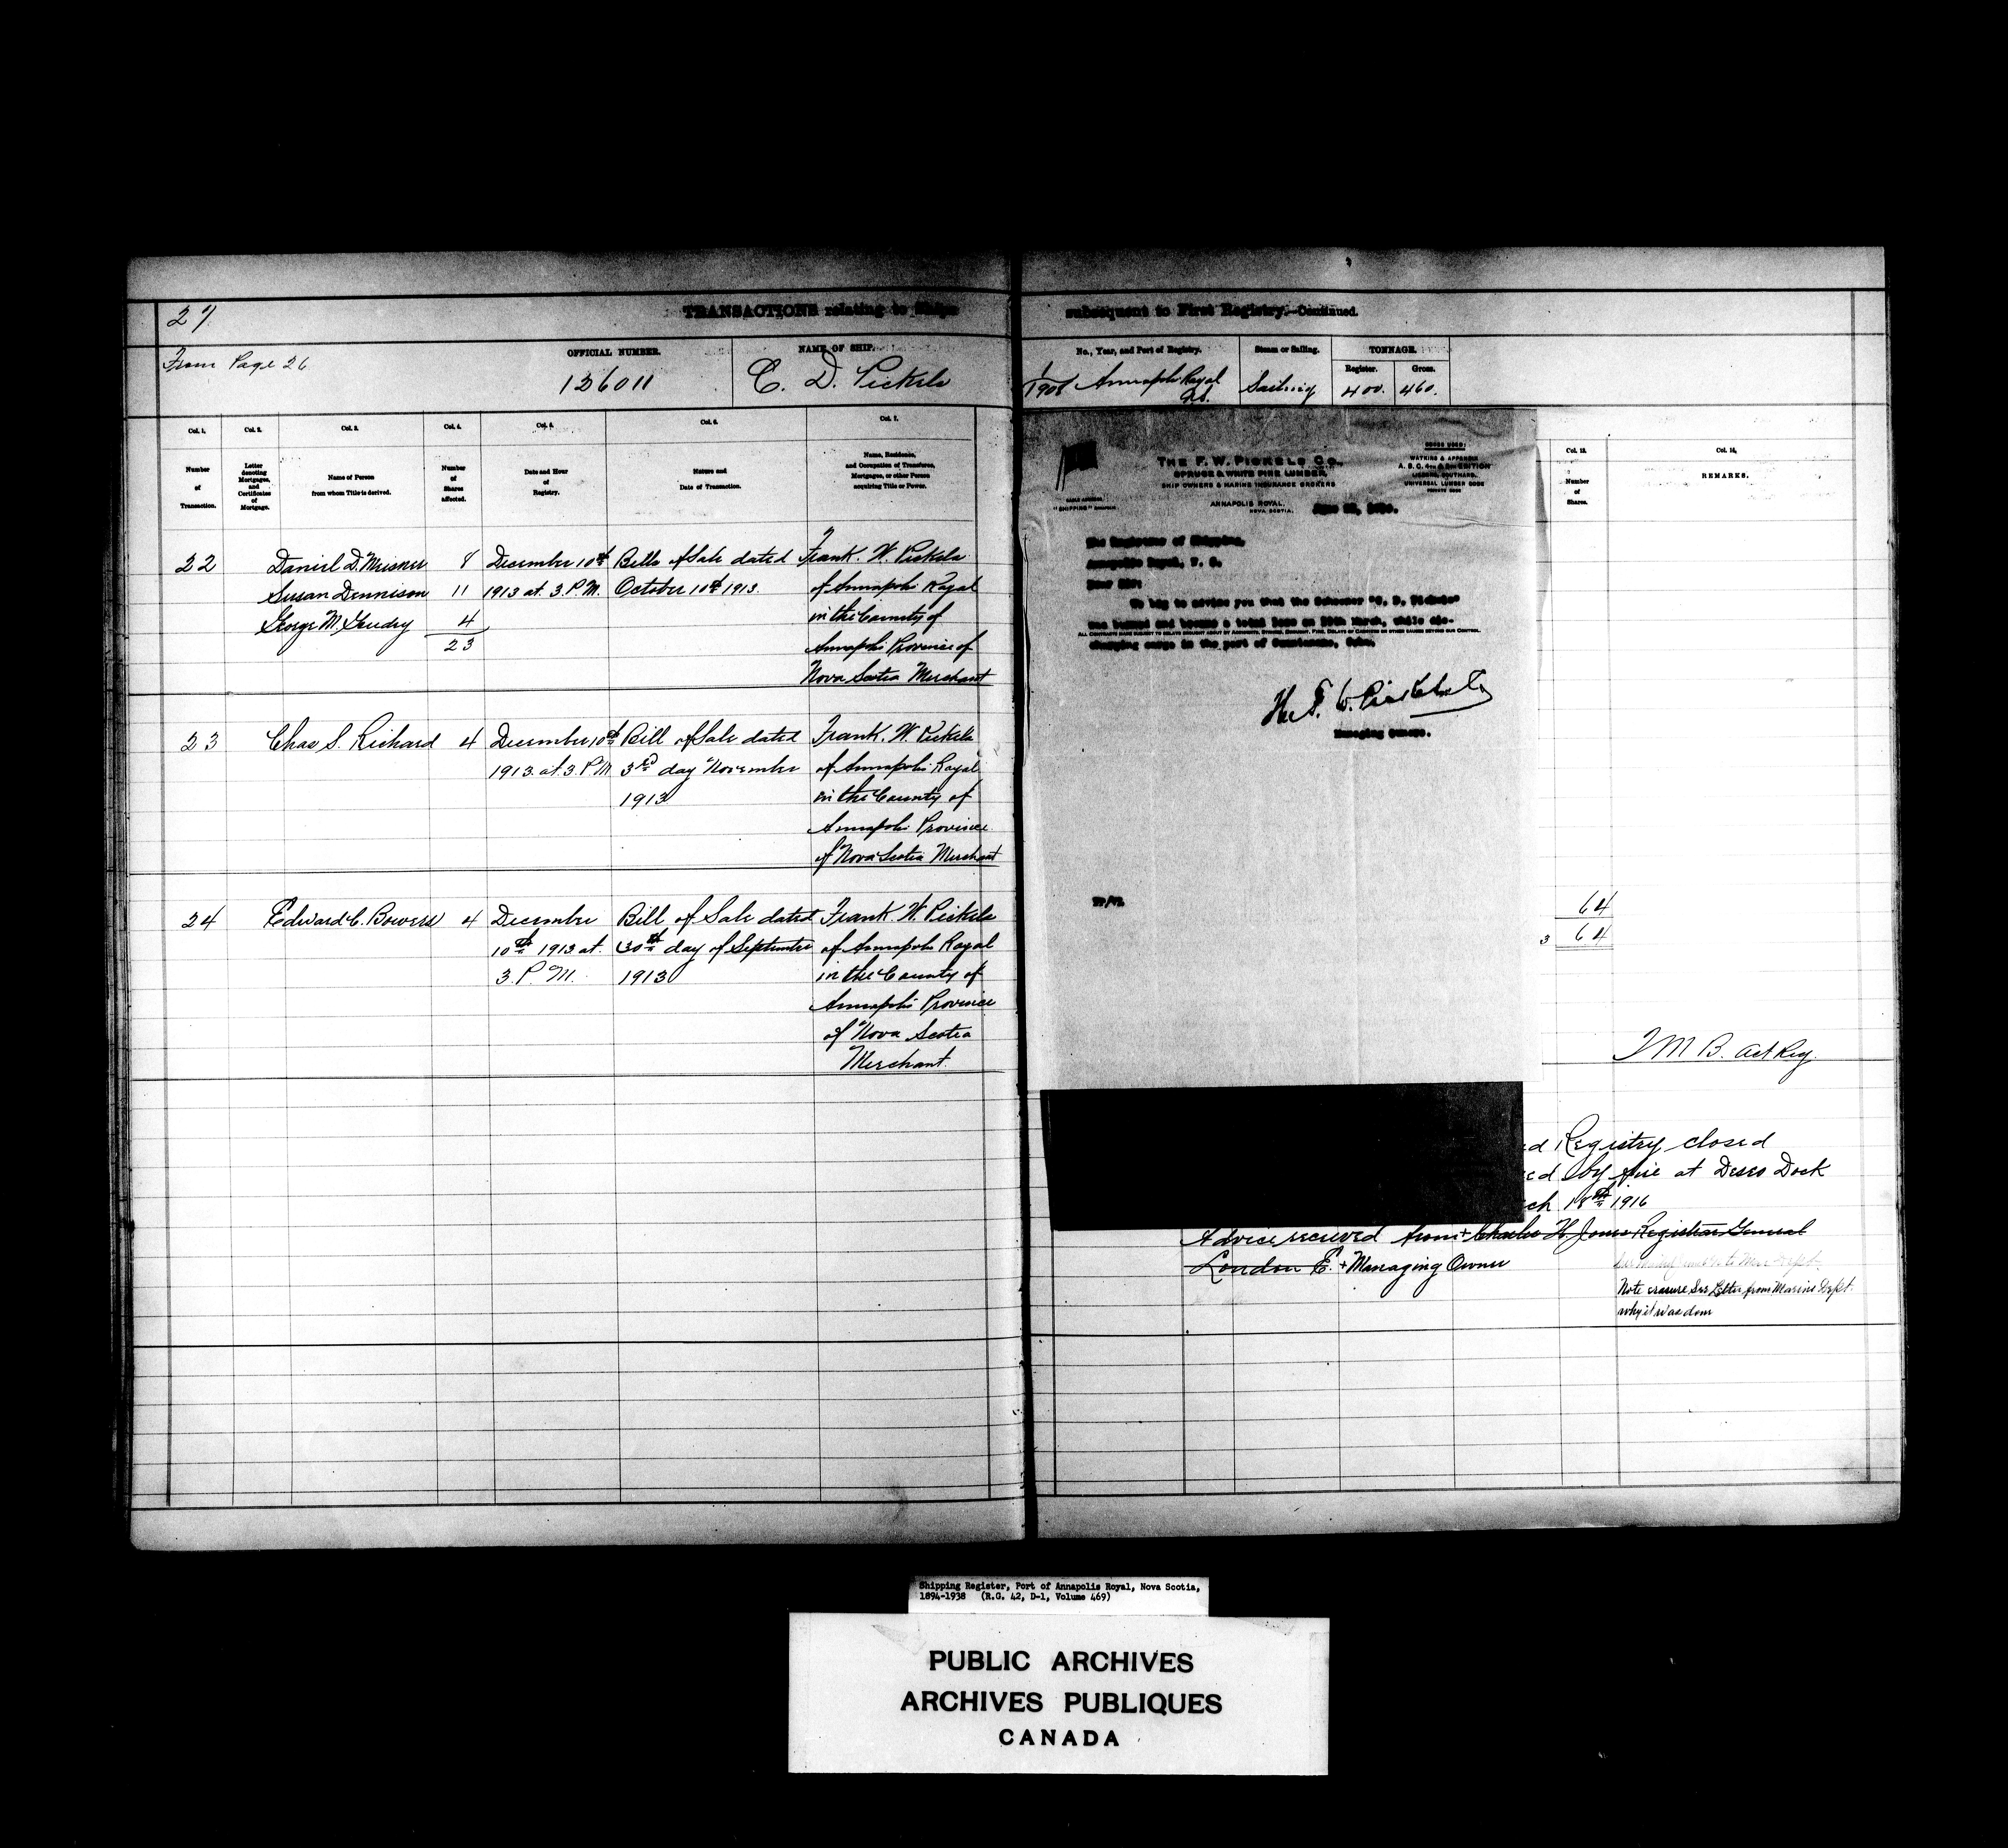 27
TRANSACTIONS relating to Ships
subsequent to First Registry.—Continued.
From Page 26
OFFICIAL NUMBER.
136011
NAME OF SHIP.
C. D. Pickels
No., Year, and Port of Registry.
1/1908 Annapolis Royal
N.S.
Steam or Sailing.
Sailing
TONNAGE.
Register.
400.
Gross.
460.
Col. 1.
Number
of
Transaction.
Col. 2.
Letter
denoting
Mortgages,
and
Certificates
of
Mortgage.
Col. 3.
Name of Person
from whom Title is derived.
Col. 4.
Number
of
Shares
affected.
Col. 5.
Date and Hour
of
Registry.
Col. 6.
Nature and
Date of Transaction.
Col. 7.
Name, Residence,
and Occupation of Transferee,
Mortgagee, or other Person
acquiring Title or Power.
22 Daniel D. Meisner 8 December 10th Bills of Sale dated Frank. W. Pickels
Susan Dennison 11 1913 at. 3. P.M. October 10th 1913. of Annapolis Royal
George M. 4 in the County of
23 Annapolis Province of
Nova Scotia Merchant
23 Chas S. Richard 4 December 10th Bill of Sale dated Frank. W. Pickels
1913. at. 3. P.M. 3rd day November of Annapolis Royal
1913 in the County of
Annapolis Province
of Nova Scotia Merchant
24 Edward C. Bowers 4 December Bill of Sale dated Frank W. Pickels
10th 1913 at. 30th day of September of Annapolis Royal
3. P. M. 1913 in the County of
Annapolis Province
of Nova Scotia
Merchant.
THE F. W. PICKELS CO.,
SPRUCE & WHITE PINE LUMBER,
SHIP OWNERS & MARINE INSURANCE BROKERS
CABLE ADDRESS,
"SHIPPING"
ANNAPOLIS ROYAL,
NOVA SCOTIA,
CODES USED:
WATKINS & APPENDIX
A. B. C. 4TH & 5TH EDITION
UNIVERSAL LUMBER CODE
PRIVATE CODE
The Registrar of Shipping,
Annapolis Royal, N. S.
Dear Sir:
We beg to advise you that the Schooner "C. D. Pickels"
was burned and became a total loss on March, while dis-
charging cargo in the port of Cuba.
F. W. Pickels Co
Managing Owners.
Col. 13.
Number
of
Shares.
Col. 14.
REMARKS.
64
3 64
T M B. act Reg.
ed Registry closed
ed by fire at Dock
ch 18th 1916
Advice received from + Charles H Jones Registrar General
London E. + Managing Owner
Note erasure See Letter from Marine Dept.
why it was done
Shipping Register, Port of Annapolis Royal, Nova Scotia,
1894-1938 (R.G. 42, D-1, Volume 469)
PUBLIC ARCHIVES
ARCHIVES PUBLIQUES
CANADA